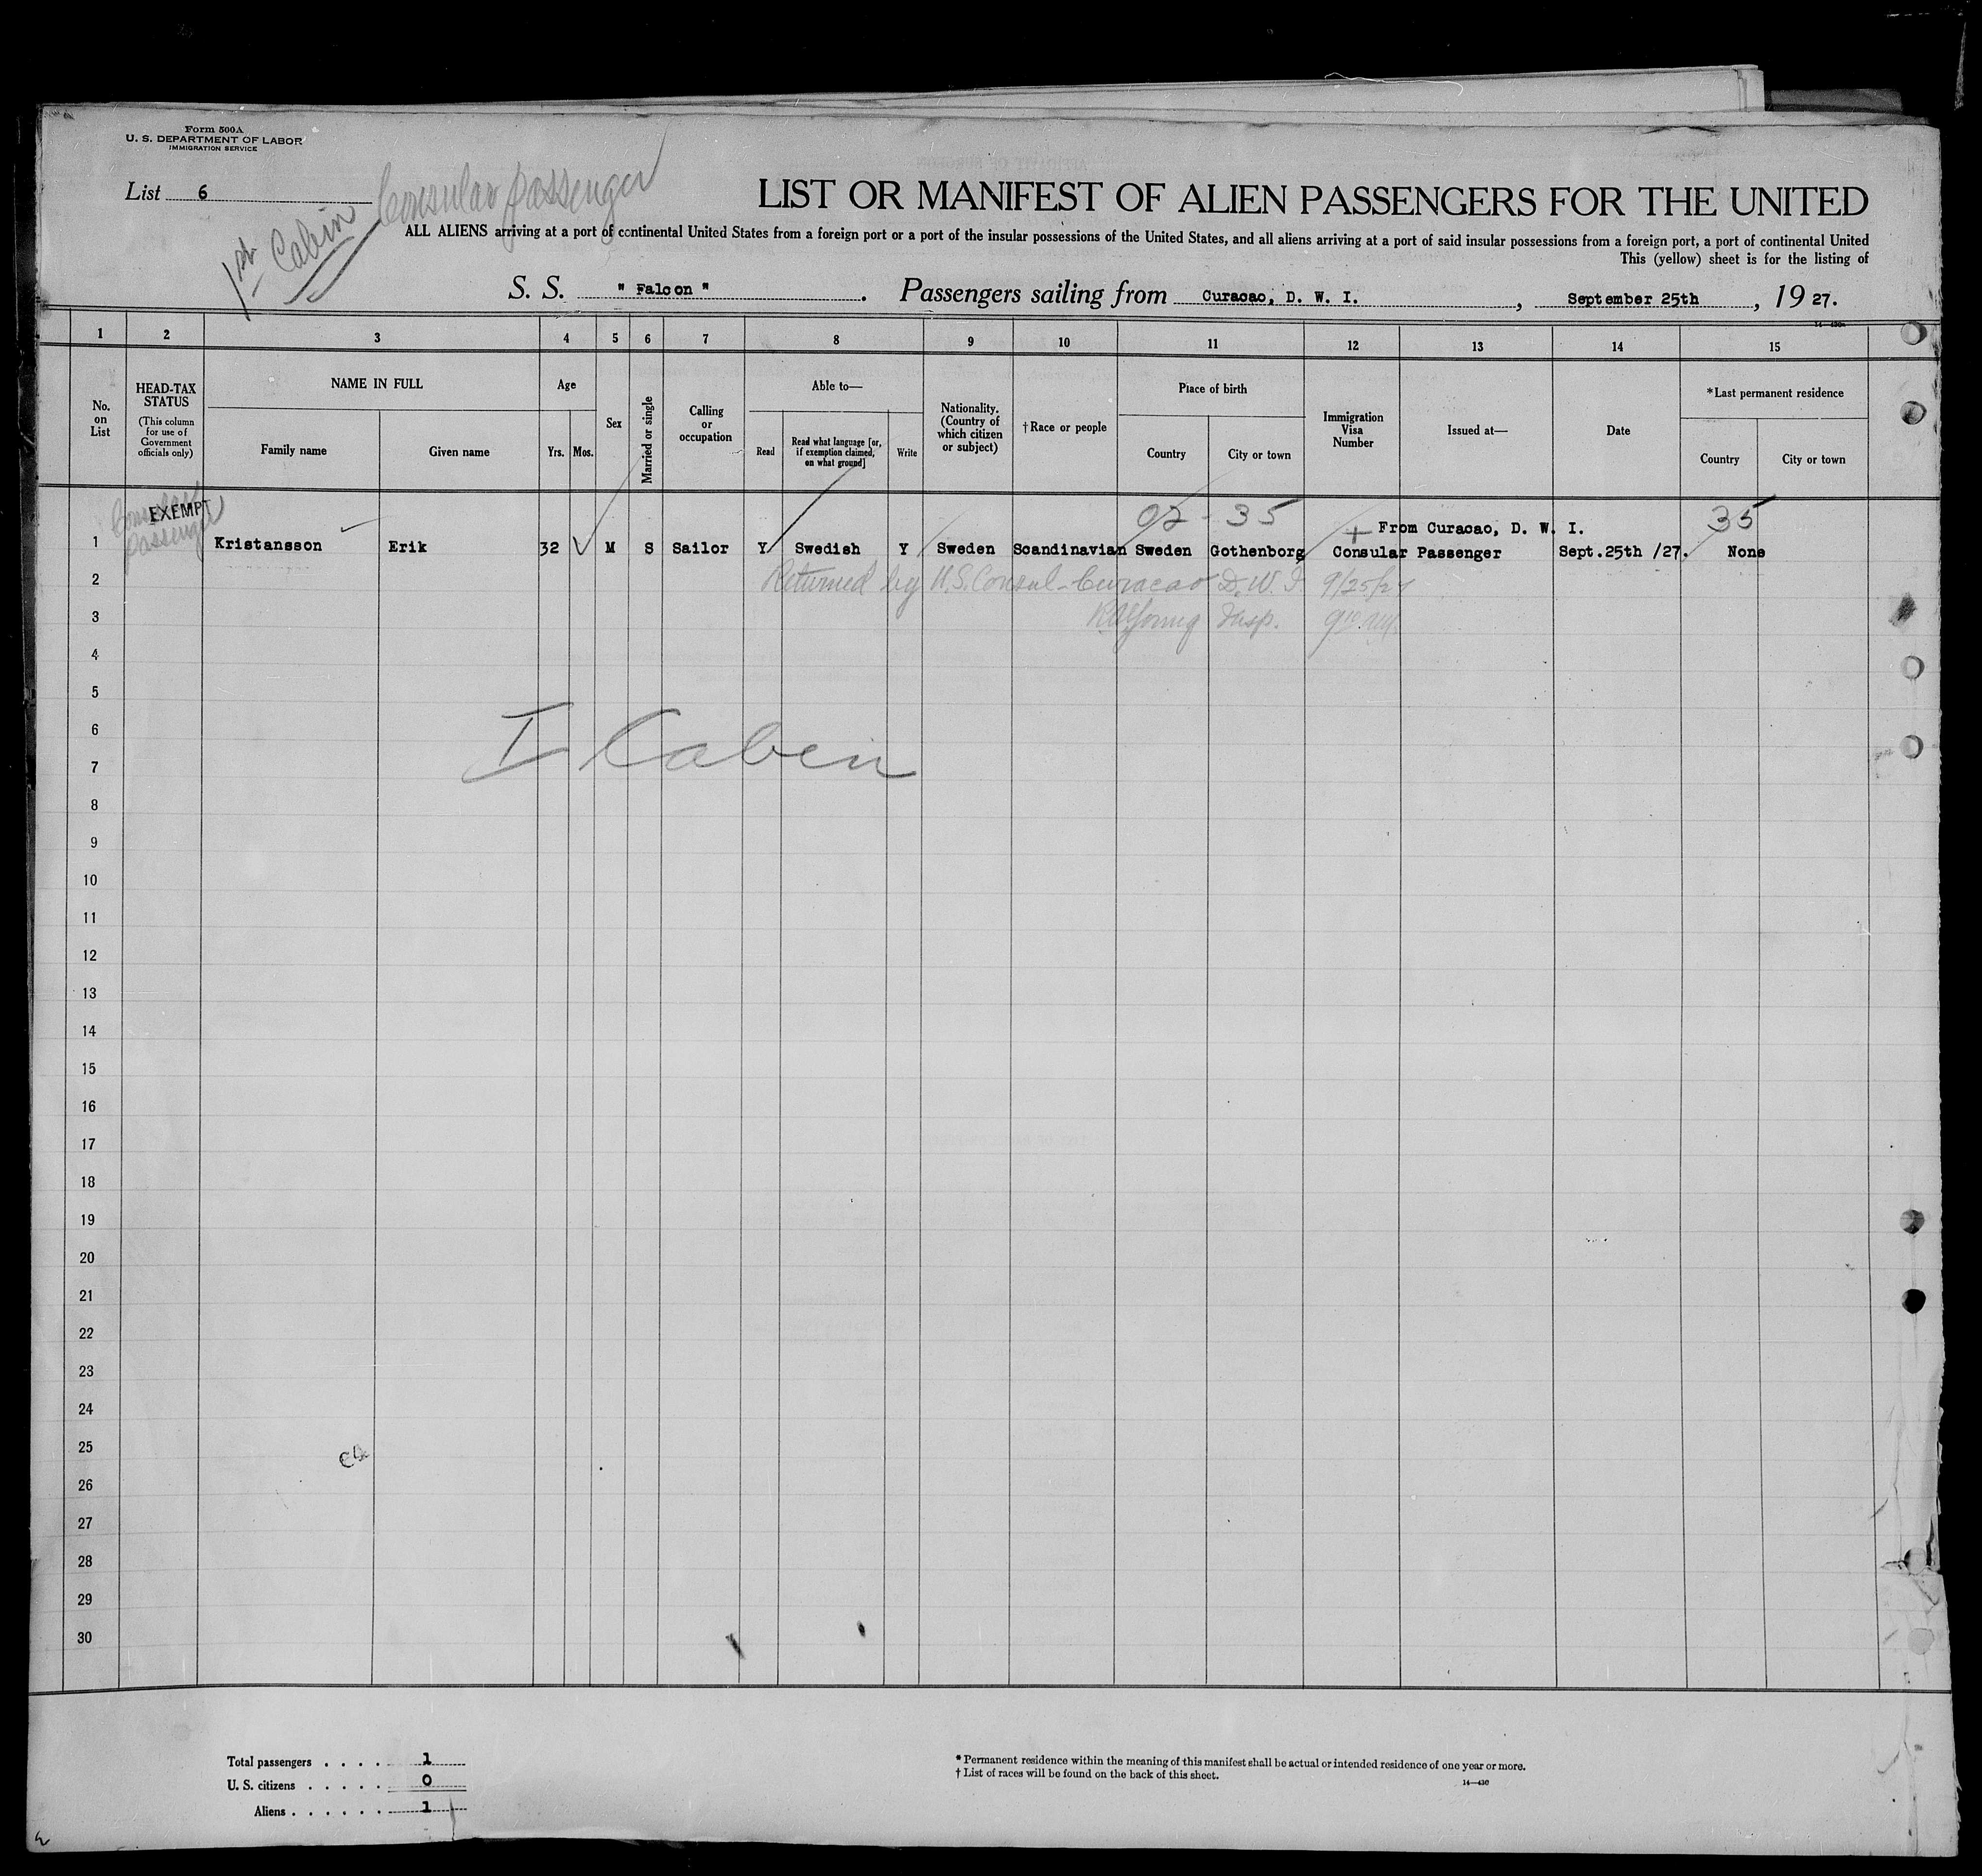 Form 500A
U. S. DEPARTMENT OF LABOR
IMMIGRATION SERVICE
List 6
1st Cabin
Consular passenger
LIST OR MANIFEST OF ALIEN PASSENGERS FOR THE UNITED
ALL ALIENS arriving at a port of continental United States from a foreign port or a port of the insular possessions of the United States, and all aliens arriving at a port of said insular possessions from a foreign port, a port of continental United
This (yellow) sheet is for the listing of
S. S. " Falcon " . Passengers sailing from Curacao, D. W. I. , September 25th , 19 27.
1 2 3 4 5 6 7 8 9 10 11 12 13 14 15
No. on List
HEAD-TAX STATUS
(This column for use of Government officials only)
NAME IN FULL
Family name
Given name
Age
Yrs.
Mos.
Sex
Married or single
Calling or occupation
Able to—
Read
Read what language [or, if exemption claimed, on what ground]
Write
Nationality. (Country of which citizen or subject)
† Race or people
Place of birth
Country
City or town
Immigration Visa Number
Issued at—
Date
* Last permanent residence
Country
City or town
Consular passenger
EXEMPT
02 - 35
35
From Curacao, D. W. I.
1 Kristansson Erik 32 M S Sailor Y Swedish Y Sweden Scandinavian Sweden Gothenborg Consular Passenger Sept.25th /27. None
2 Returned by U.S. Consul - Curacao D.W.I. 9/25/27
3 Insp.
4
5
6
I Cabin
7
8
9
10
11
12
13
14
15
16
17
18
19
20
21
22
23
24
25
26
27
28
29
30
Total passengers . . . . 1
U. S. citizens . . . . . 0
Aliens . . . . . . 1
* Permanent residence within the meaning of this manifest shall be actual or intended residence of one year or more.
† List of races will be found on the back of this sheet.
14—430